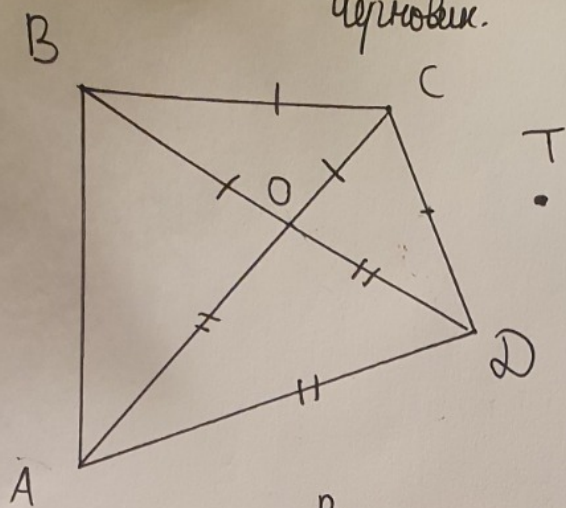 Черновик.
B
C
T
O
D
A